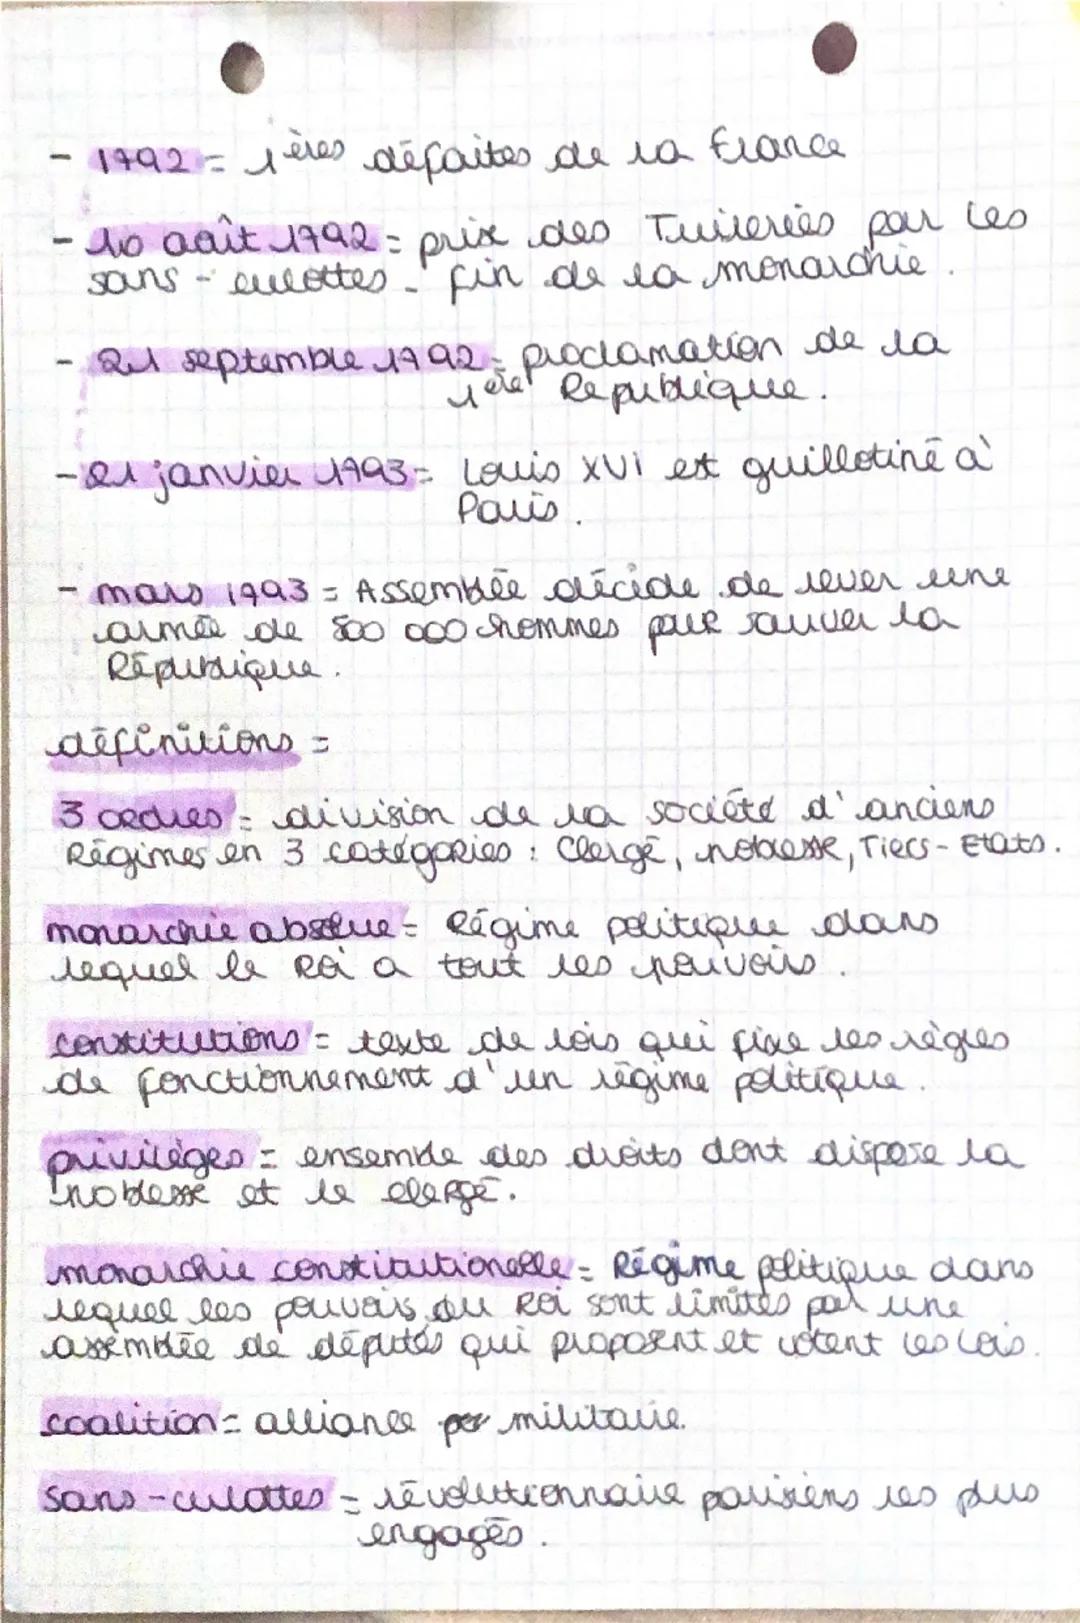 - 1792 = 1ères défaites de la France
- 10 août 1792 = prix des Tuileries par les
sans-culottes - fin de la monarchie.
- 21 septembre 1792 = proclamation de la
1ère République.
- 21 janvier 1793 = Louis XVI est guillotiné à
Paris.
- mars 1793 = Assemblée décide de lever une
armée de 800 000 hommes pour sauver la
République.
définitions =
3 ordres = division de la société d'anciens
Régimes en 3 catégories : Clergé, noblesse, Tiers-Etats.
monarchie absolue = Régime politique dans
lequel le Roi a tout les pouvoirs.
constitutions = texte de lois qui fixe les règles
de fonctionnement d'un régime politique.
privilèges = ensemble des droits dont dispose la
noblesse et le clergé.
monarchie constitutionelle = Régime politique dans
lequel les pouvoirs du Roi sont limités par une
assemblée de députés qui proposent et votent les lois.
coalition = alliance militaire.
sans-culottes = révolutionnaire parisiens les plus
engagés.